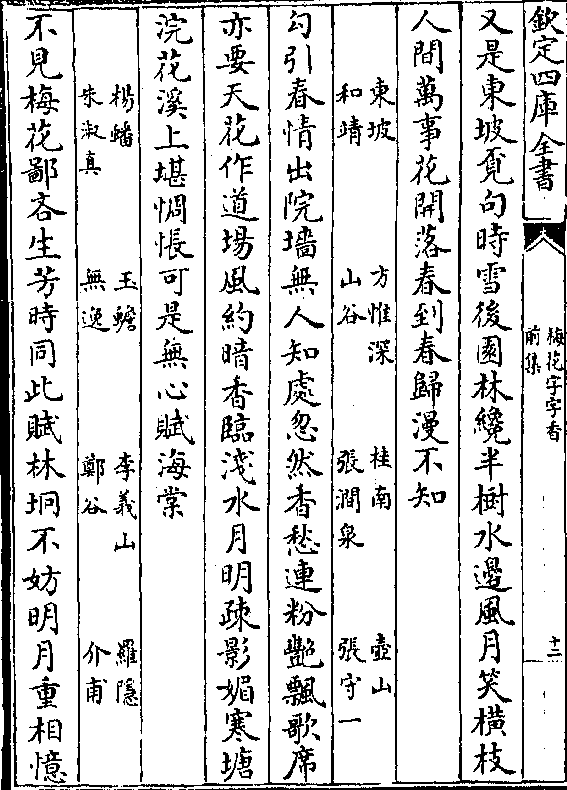 欽定四庫全書
梅花字字香
前集
十二
又是東坡覔句時雪後園林纔半樹水邊風月笑橫枝
人間萬事花開落春到春歸漫不知
東坡　方惟深　桂南　壺山
和靖　山谷　張澗泉　張守一
勾引春情出院墻無人知處忽然香愁連粉艷飄歌席
亦要天花作道場風約暗香臨淺水月明疎影媚寒塘
浣花溪上堪惆悵可是無心賦海棠
楊蟠　玉蟾　李義山　羅隱
朱淑真　無逸　鄭谷　介甫
不見梅花鄙吝生芳時同此賦林坰不妨明月重相憶